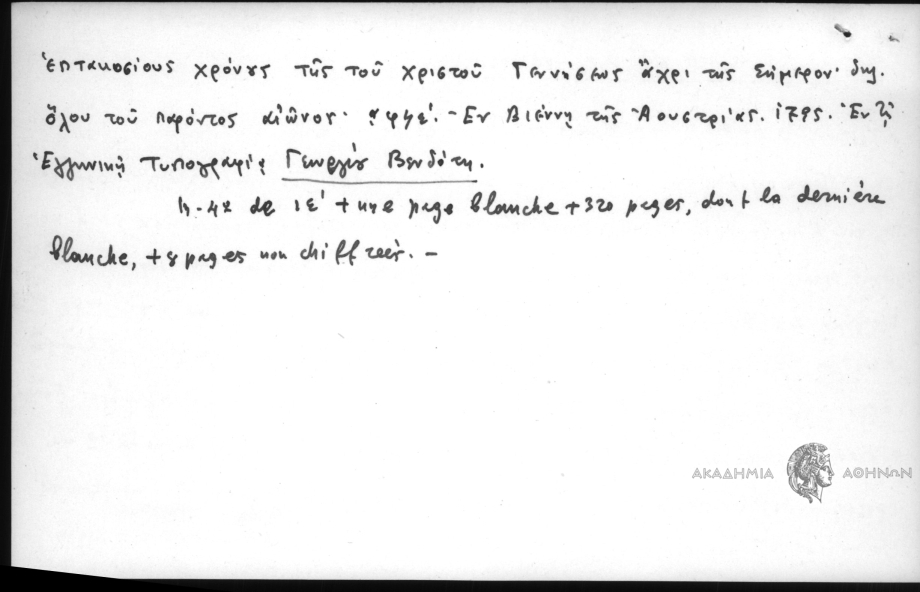 ἑπτακοσίους χρόνους τῆς τοῦ χριστοῦ Γεννήσεως ἄχρι τῆς σήμερον· δηλ.
ὅλου τοῦ παρόντος αἰῶνος· ͵αψϟέ. - Ἐν Βιέννῃ τῆς Ἀουστρίας. 1795. Ἐν τῇ
Ἑλληνικῇ Τυπογραφίᾳ Γεωργίου Βενδότη.
In-4º de ιε' + une page blanche + 320 pages, dont la dernière
blanche, + 8 pages non chiffreés. -
ΑΚΑΔΗΜΙΑ ΑΘΗΝΩΝ